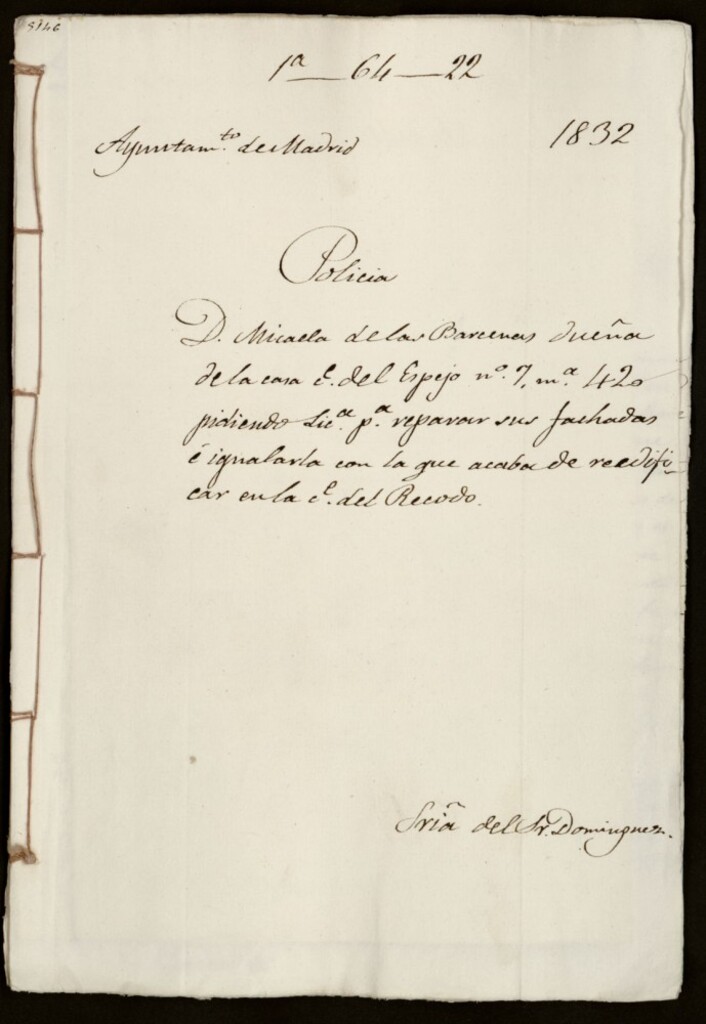 5146
1ª — 64 — 22
Ayuntam.to de Madrid 1832
Policia
D. Micaela de las Barcenas dueña
de la casa c.e del Espejo nº. 7, m.ª 420
pidiendo Lic.ª p.ª reparar sus fachadas
é igualarla con la que acaba de reedifi-
car en la c.e del Recodo.
Sriã del Sr. Dominguez.